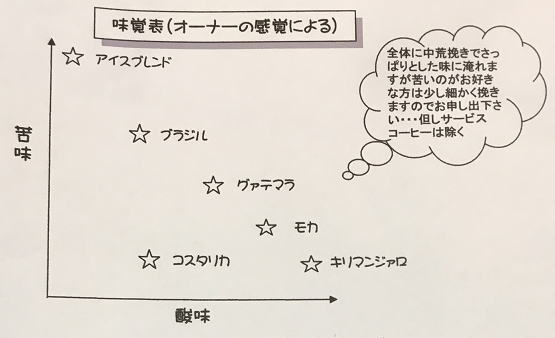 味覚表(オーナーの感覚による)
アイスブレンド
全体に中荒挽きでさっ
ぱりとした味に淹れま
すが苦いのがお好き
な方は少し細かく挽き
ますのでお申し出下さ
い・・・但しサービス
コーヒーは除く
苦味
ブラジル
グァテマラ
モカ
コスタリカ
キリマンジァロ
酸味